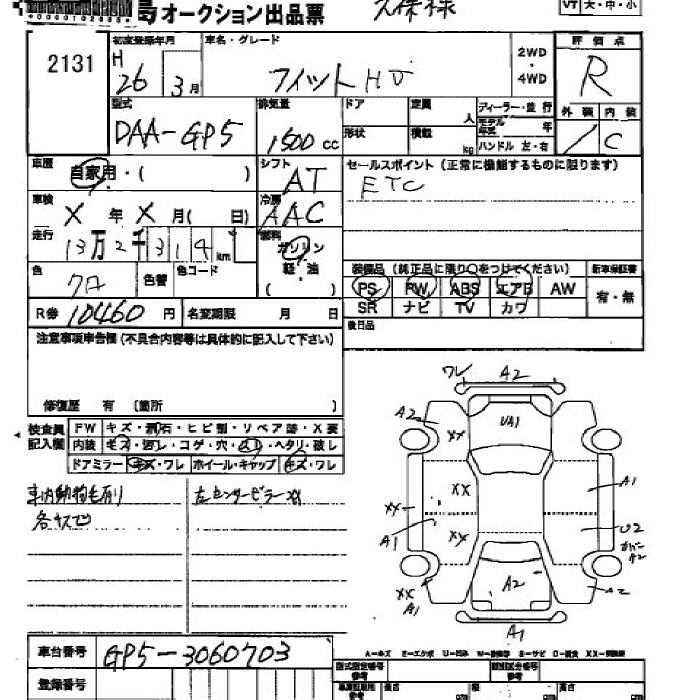 オークション出品票
久保様
VT 大・中・小
2131
初度登録年月
H 26 3月
車名・グレード
フィット HV
2WD・4WD
評価点
R
外装 内装
/ C
型式
DAA-GP5
排気量
1500 cc
ドア
定員 人
ディーラー・並行
モデル年式 年
形状
積載 kg
ハンドル 左・右
車歴
自家用・( )
シフト
AT
セールスポイント(正常に機能するものに限ります)
ETC
車検
X 年 X 月( 日)
冷房
AAC
走行
13万2千314km
燃料
ガソリン
軽・油
( )
色
クロ
色替
色コード
装備品(純正品に限り○をつけてください)
新車保証書
PS PW ABS エアB AW
SR ナビ TV カワ
有・無
R券 10460 円
名変期限 月 日
後日品
注意事項申告欄(不具合内容等は具体的に記入して下さい)
修復歴 有 (箇所 )
検査員記入欄
FW キズ・飛石・ヒビ割・リペア跡・X要
内装 キズ・汚レ・コゲ・穴・スレ・ヘタリ・破レ
ドアミラー キズ・ワレ ホイール・キャップ キズ・ワレ
車内動物毛有リ
各キズ凹
左センターピラーXX
ワレ A2
A2
XX
UA1
XX
A1
XX
XX
A1
U2
カバーA2
XX
A1
A2
A2
A1
A-キズ E-エクボ U-凹み W-補修跡 S-サビ C-腐食 XX-交換済
車台番号
GP5-3060703
登録番号
型式指定番号
参考
類別区分番号
参考
長さ cm
幅 cm
高さ cm